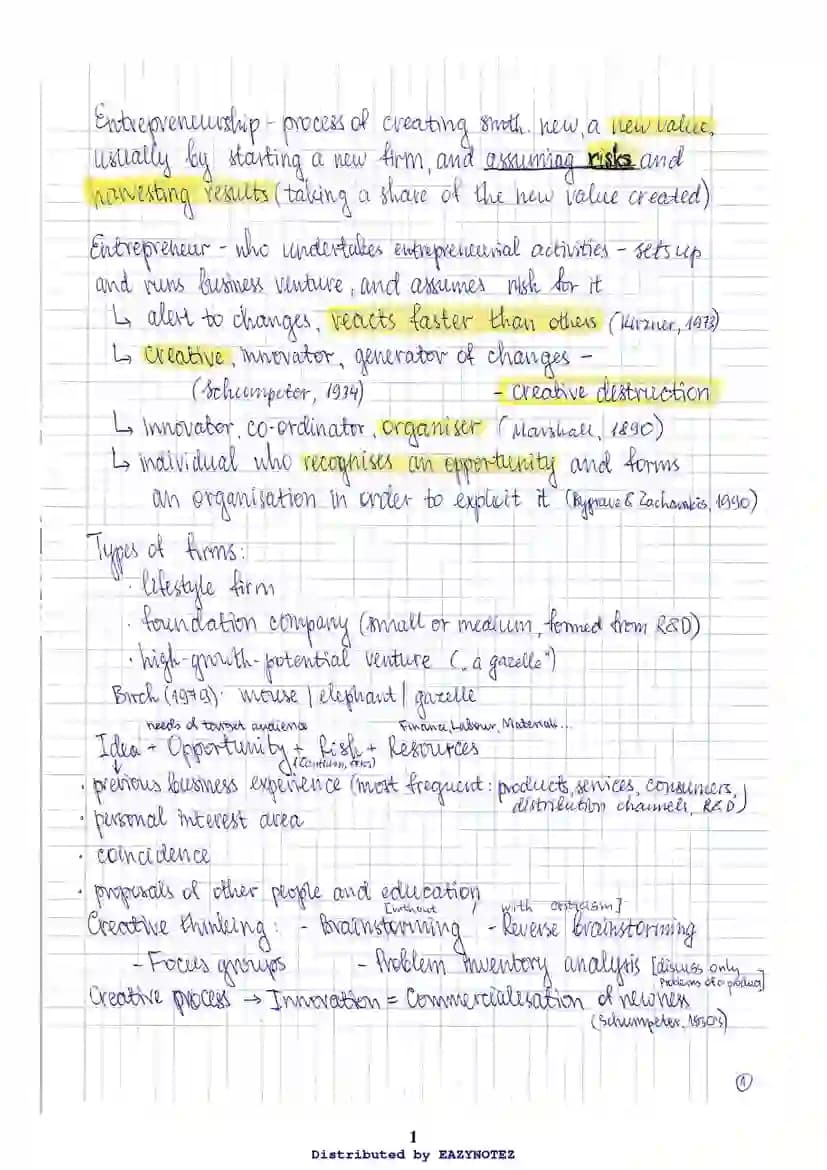 Entrepreneurship - process of creating smth. new, a new value,
usually by starting a new firm, and assuming risks and
harvesting results (taking a share of the new value created)
Entrepreneur - who undertakes entrepreneurial activities - sets up
and runs business venture, and assumes risk for it
↳ alert to changes, reacts faster than others (Kirzner, 1973)
↳ creative, innovator, generator of changes -
(Schumpeter, 1934) - creative destruction
↳ Innovator, co-ordinator, organiser (Marshall, 1890)
↳ individual who recognises an opportunity and forms
an organisation in order to exploit it (Bygrave & Zacharakis, 1990)
Types of firms:
· lifestyle firm
· foundation company (small or medium, formed from R&D)
· high-growth-potential venture („a gazelle")
Birch (1979): mouse | elephant | gazelle
needs of target audience Finance, Labour, Materials...
Idea + Opportunity + Risk + Resources
· previous business experience (most frequent: products, services, consumers,
distribution channels, R&D)
· personal interest area
· coincidence
· proposals of other people and education
[without / with criticism]
Creative thinking: - Brainstorming - Reverse brainstorming
- Focus groups - Problem inventory analysis [discuss only
problems of a product]
Creative process → Innovation = Commercialisation of newness
(Schumpeter, 1930's)
1
1
Distributed by EAZYNOTEZ